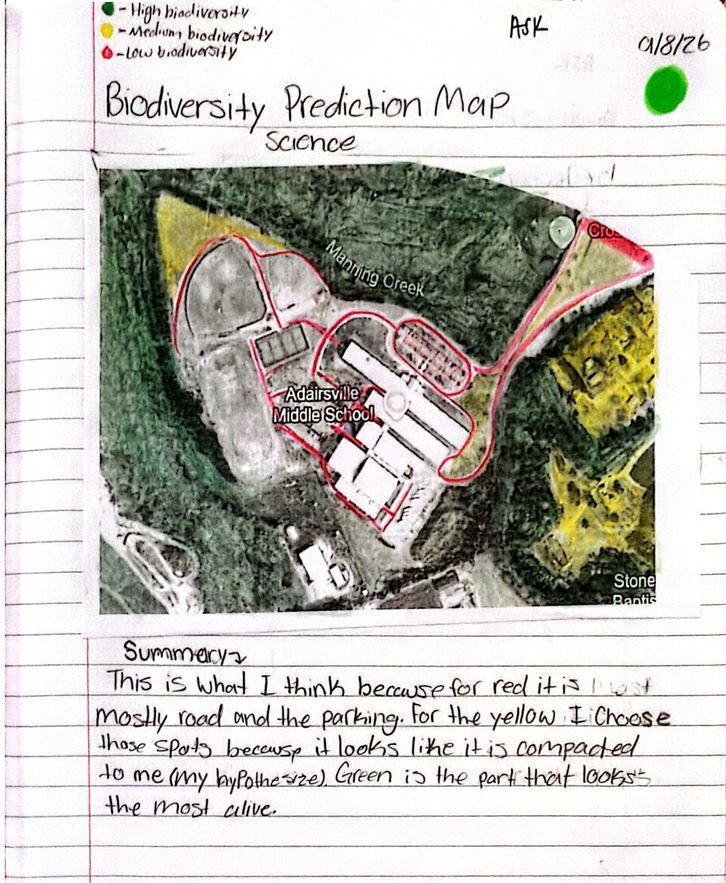 - High biodiversity
- Medium biodiversity
- Low biodiversity
ASK
01/8/26
Biodiversity Prediction Map
Science
Manning Creek
Cro
Adairsville
Middle School
Stone
Baptis
Summary
This is what I think because for red it is most
mostly road and the parking. For the yellow I choose
those spots because it looks like it is compacted
to me (my hypothesize). Green is the part that looks
the most alive.